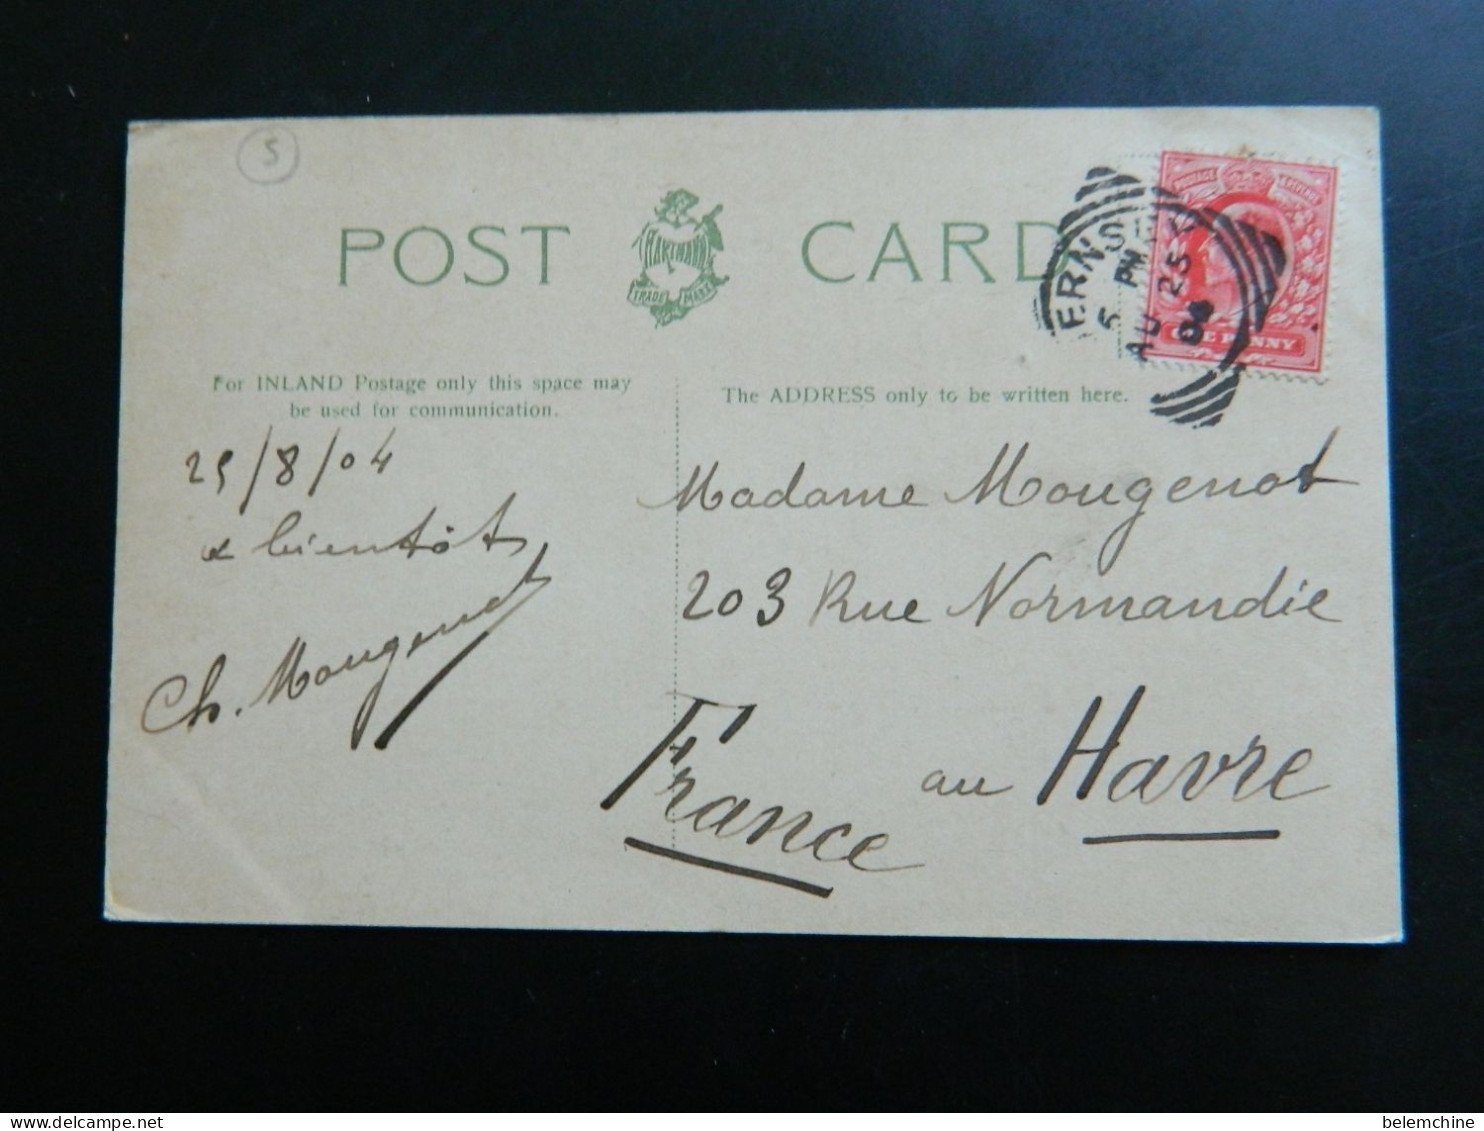 5
POST CARD
HARTMANN
TRADE MARK
For INLAND Postage only this space may
be used for communication.
The ADDRESS only to be written here.
5 PM
AU 25
04
POSTAGE REVENUE
ONE PENNY
25/8/04
a bientôt
Ch. Mougenot
Madame Mougenot
203 Rue Normandie
au Havre
France
belemchine